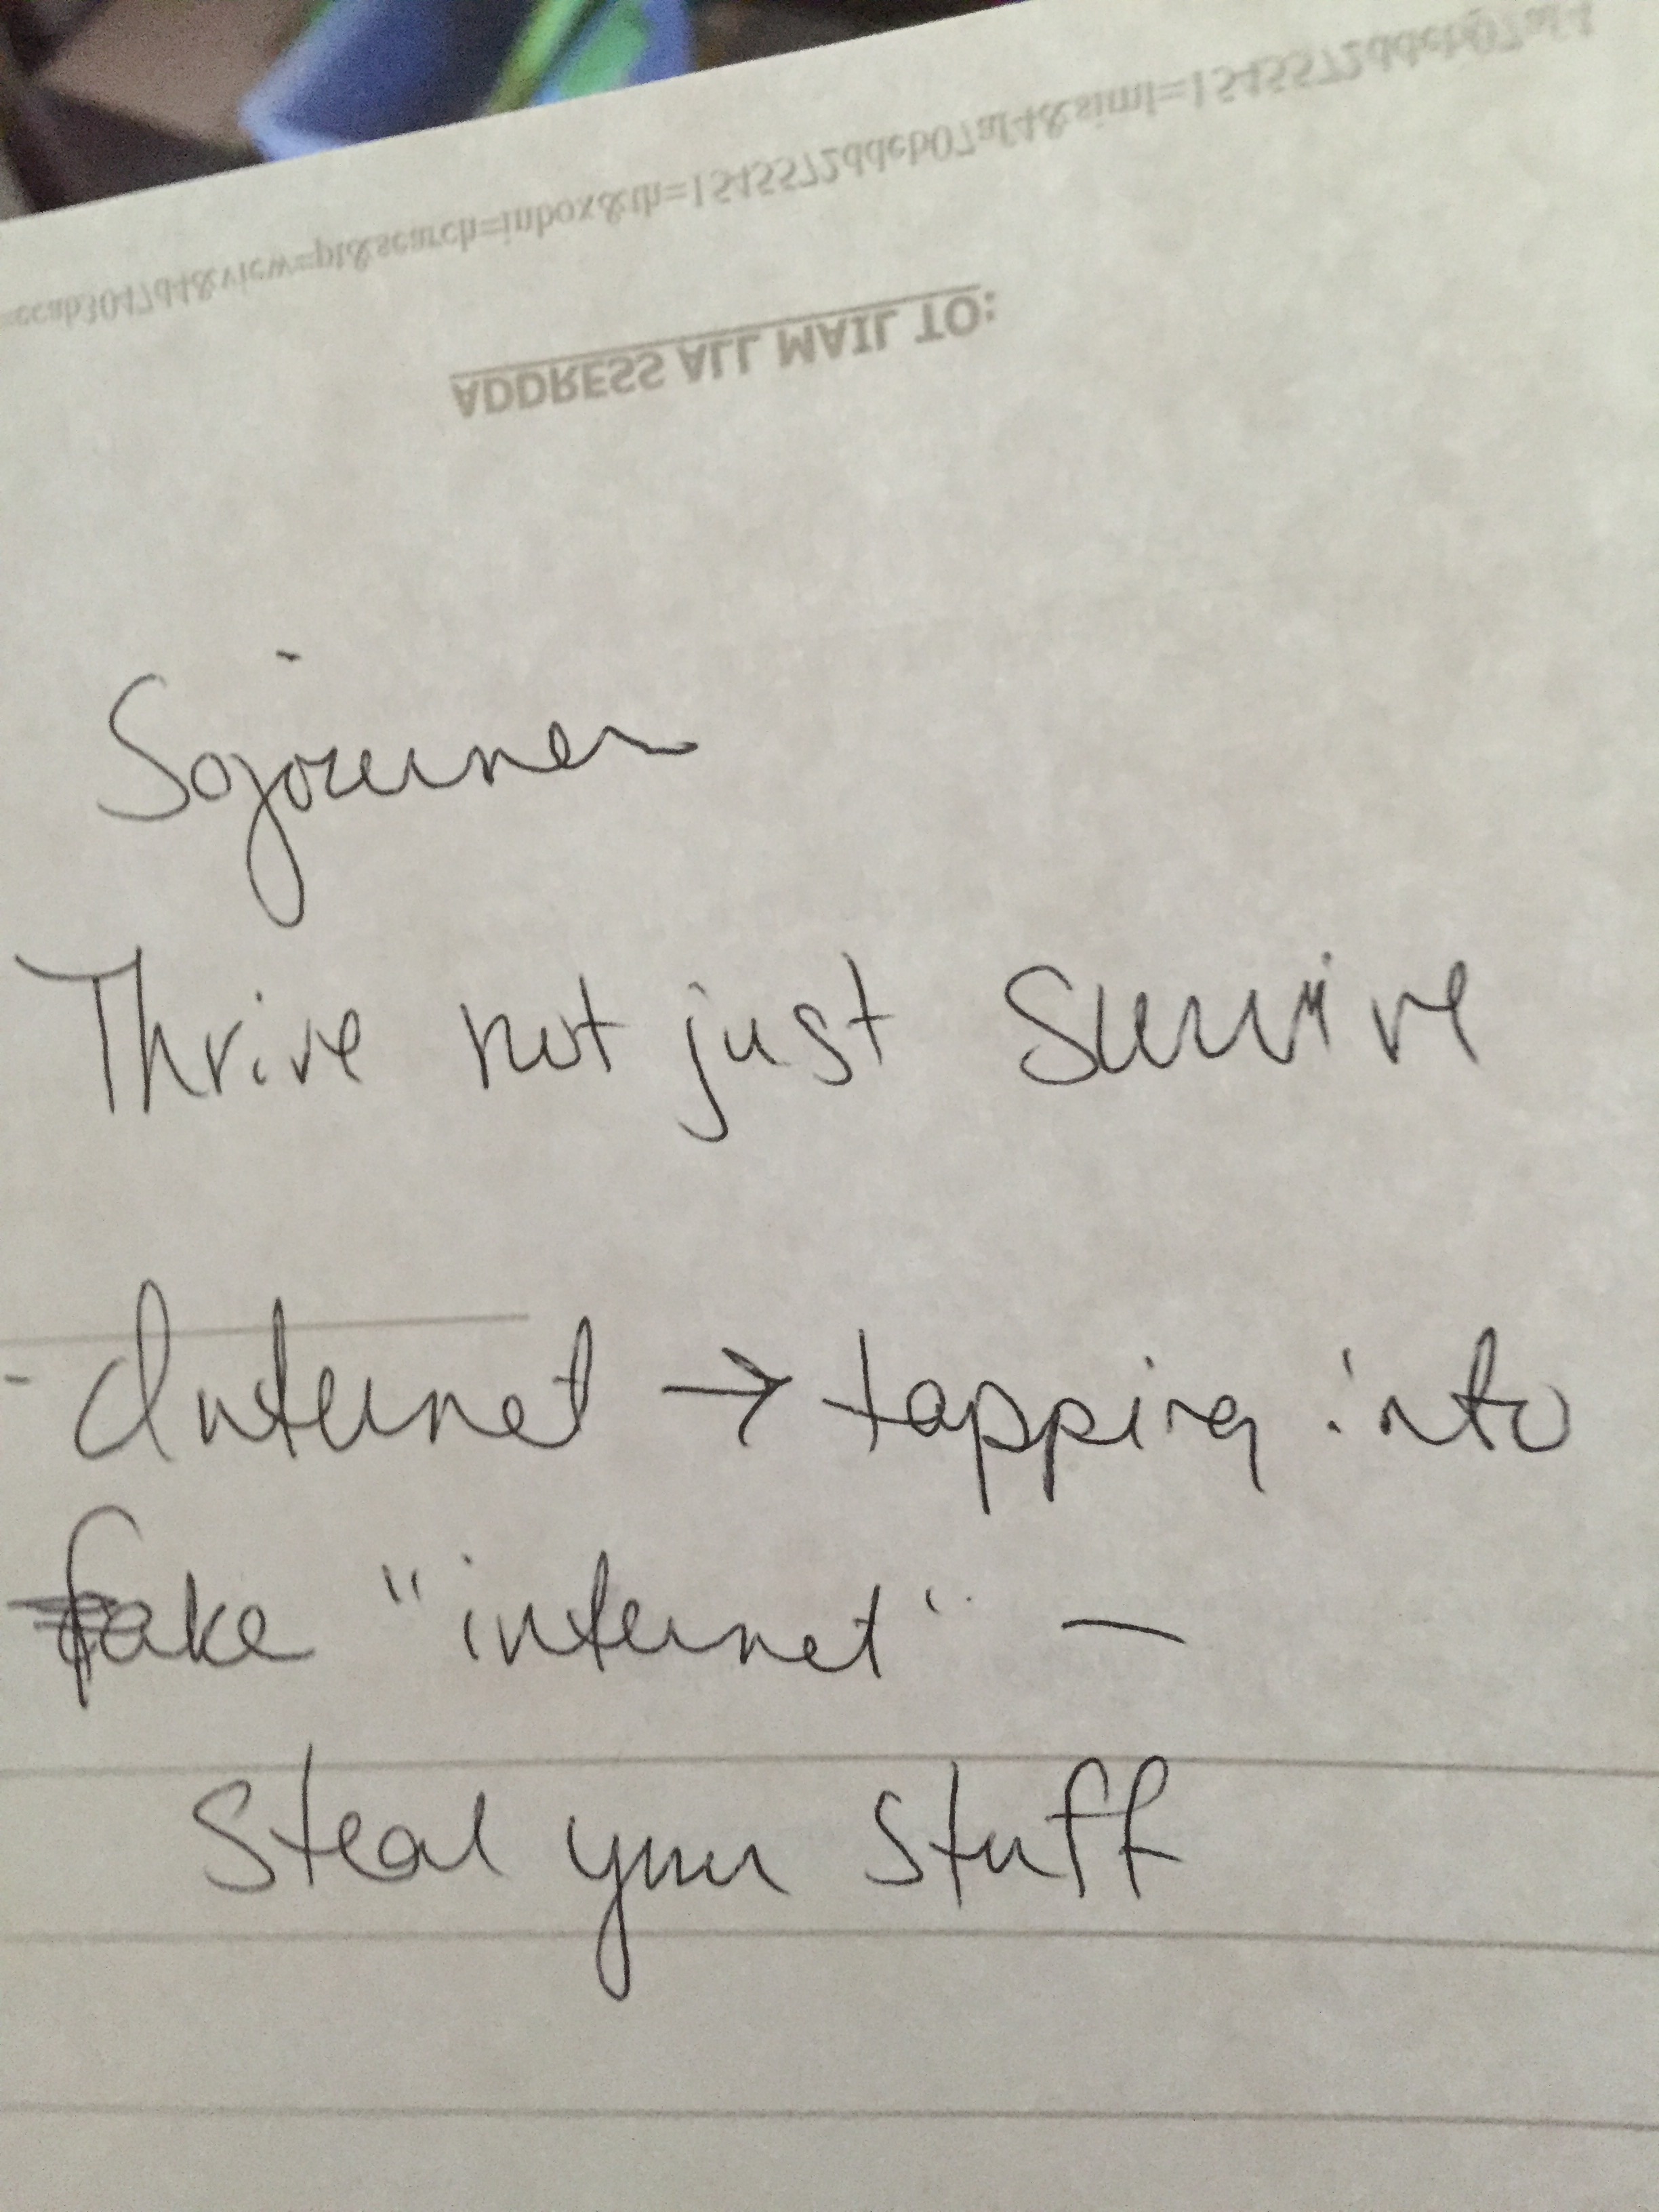 =ccab3047d4&view=pt&search=inbox&th=1545572ddeb07af4&siml=1545572ddeb07af4
ADDRESS ALL MAIL TO:
Sojourner
Thrive not just Survive
- Internet → tapping into
fake "internet" —
Steal your stuff